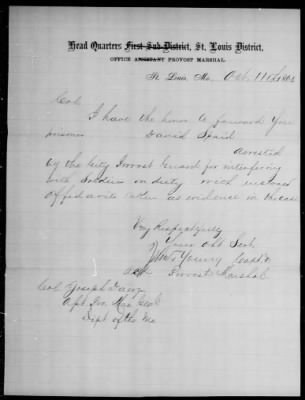 Head Quarters First Sub-District, St. Louis District.
OFFICE ASSISTANT PROVOST MARSHAL.
St. Louis, Mo., Oct. 11th 186
Col
I have the honor to forward you
prisoner David
arrested
by the City Provost Guard for interfering
with Soldiers on duty with enclosed
affidavits taken as evidence in the case
Very Respectfully
Your Obt Sevt
Capt &
Provost Marshal
Col Joseph
Mar Genl
Dept of the Mo